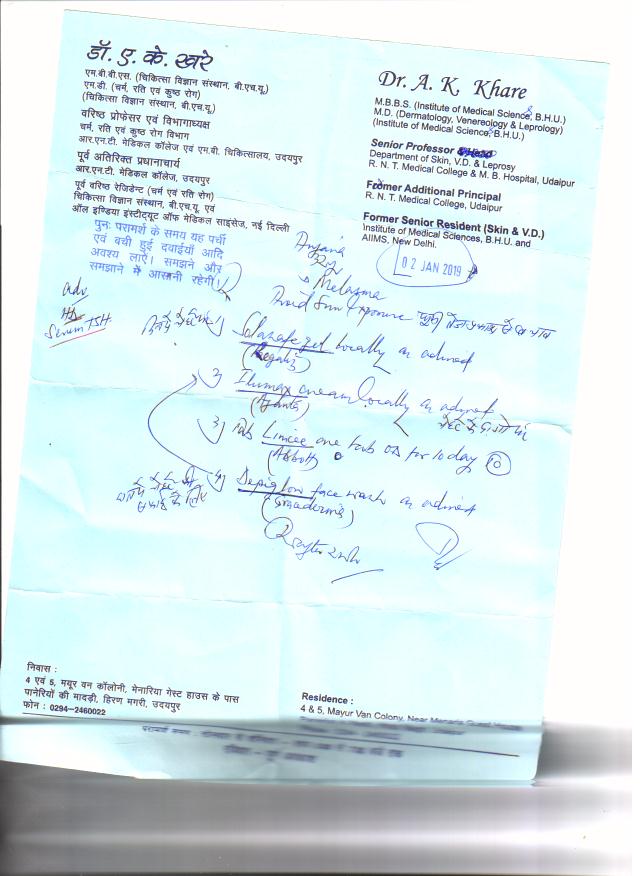 डॉ. ए. के. खरे
एम.बी.बी.एस. (चिकित्सा विज्ञान संस्थान, बी.एच.यू.)
एम.डी. (चर्म, रति एवं कुष्ठ रोग)
(चिकित्सा विज्ञान संस्थान, बी.एच.यू.)
वरिष्ठ प्रोफेसर एवं विभागाध्यक्ष
चर्म, रति एवं कुष्ठ रोग विभाग
आर.एन.टी. मेडिकल कॉलेज एवं एम.बी. चिकित्सालय, उदयपुर
पूर्व अतिरिक्त प्रधानाचार्य
आर.एन.टी. मेडिकल कॉलेज, उदयपुर
पूर्व वरिष्ठ रेजिडेन्ट (चर्म एवं रति रोग)
चिकित्सा विज्ञान संस्थान, बी.एच.यू. एवं
ऑल इण्डिया इंस्टीट्यूट ऑफ मेडिकल साइंसेज, नई दिल्ली
पुनः परामर्श के समय यह पर्ची
एवं बची हुई दवाईयाँ आदि
अवश्य लाएँ। समझने और
समझाने में आसानी रहेगी।
Dr. A. K. Khare
M.B.B.S. (Institute of Medical Science, B.H.U.)
M.D. (Dermatology, Venereology & Leprology)
(Institute of Medical Science, B.H.U.)
Senior Professor
Department of Skin, V.D. & Leprosy
R. N. T. Medical College & M. B. Hospital, Udaipur
Former Additional Principal
R. N. T. Medical College, Udaipur
Former Senior Resident (Skin & V.D.)
Institute of Medical Sciences, B.H.U. and
AIIMS, New Delhi.
02 JAN 2019
Anjana
Melasma
Avoid Sun Exposure
adv
Serum TSH
1) gel locally as advised
2) Ilumax cream locally as advised
(Ajanta)
3) Tab Limcee one tab OD for 10 day 10
(Abbott)
4) Depiglow face wash as advised
निवास :
4 एवं 5, मयूर वन कॉलोनी, मेनारिया गेस्ट हाउस के पास
पानेरियों की मादड़ी, हिरण मगरी, उदयपुर
फोन : 0294-2460022
Residence :
4 & 5, Mayur Van Colony, Near Menaria Guest House